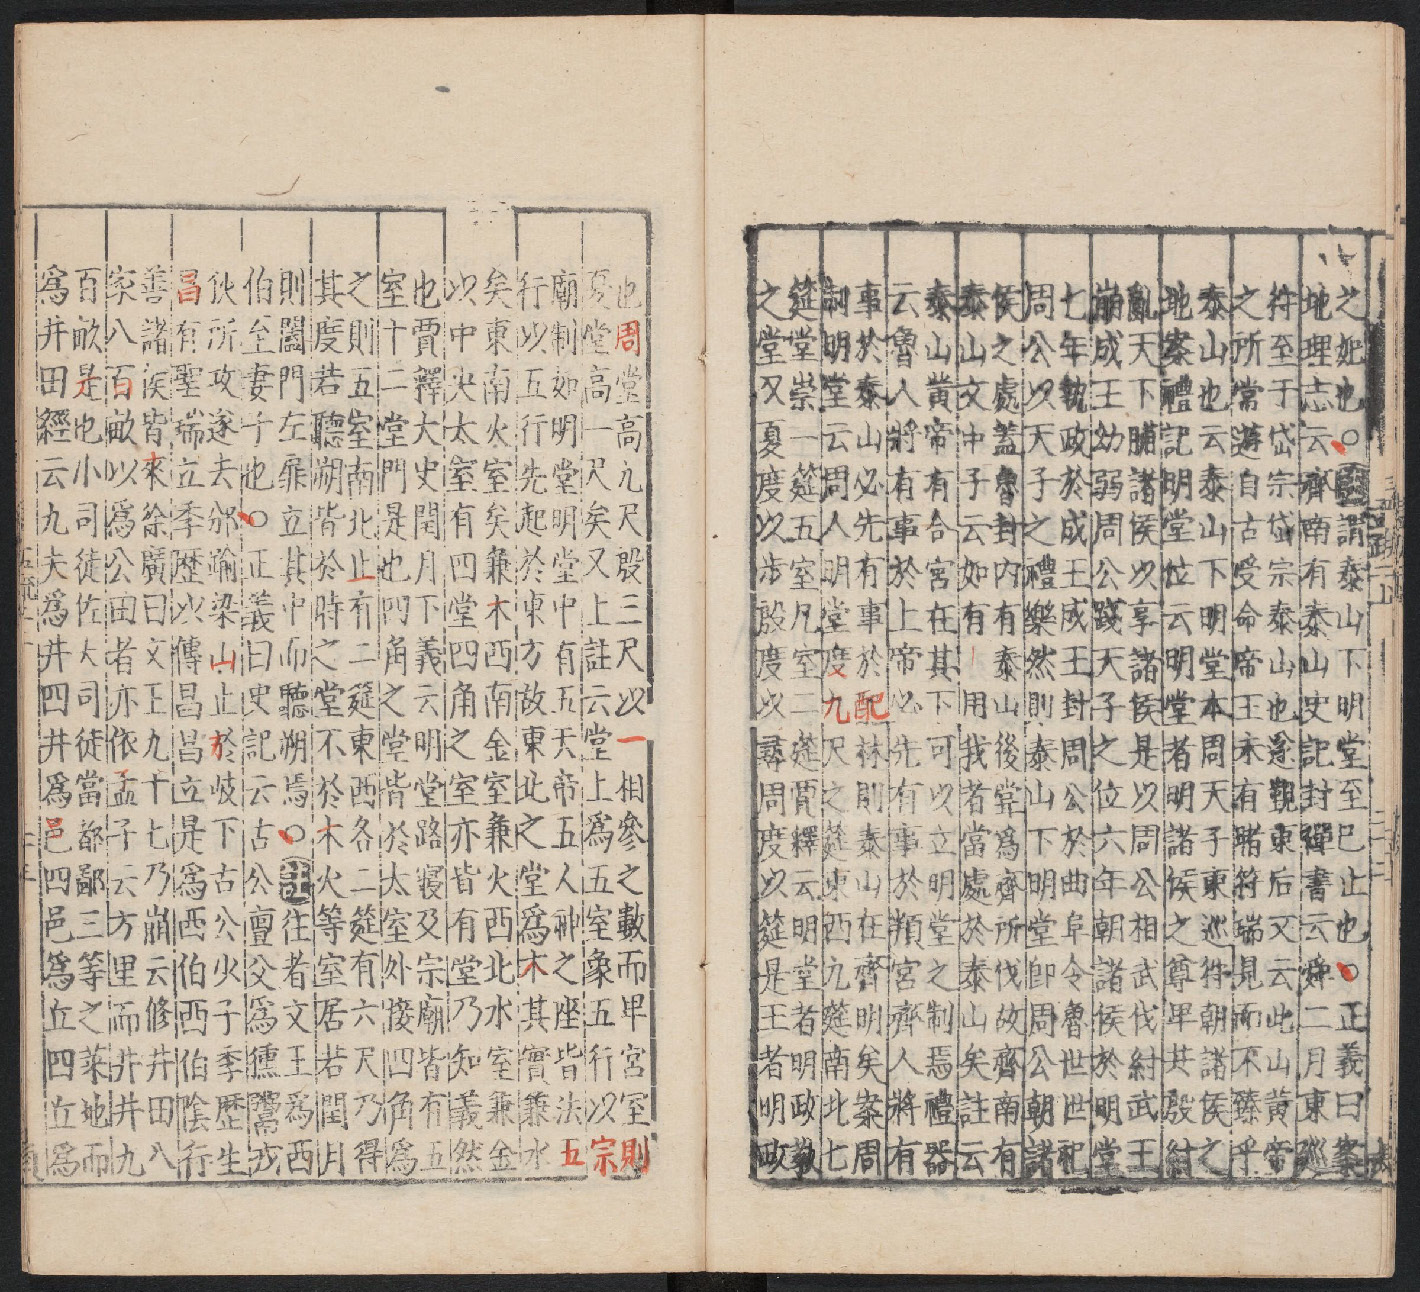 之妃也○註謂泰山下明堂至巳止也○正義曰案
地理志云齊南有泰山史記封禪書云舜二月東巡
符至于岱宗岱宗泰山也遂覲東后又云此山黃帝
之所常遊自古受命帝王未有睹符端見而不臻乎
泰山也云泰山下明堂本周天子東巡狩朝諸侯之
地案禮記明堂位云明堂者明諸侯之尊卑共殷紂
亂天下脯諸侯以享諸侯是以周公相武伐紂武王
崩成王幼弱周公踐天子之位六年朝諸侯於明堂
七年執政於成王成王封周公於曲阜令魯世世祀
周公以天子之禮樂然則泰山下明堂卽周公朝諸
侯之處蓋魯封內有泰山後嘗爲齊所伐故齊南有
泰山文中子云如有用我者當處於泰山矣註云
泰山黃帝有合宮在其下可以立明堂之制焉禮器
云魯人將有事於上帝必先有事於頖宮齊人將有
事於泰山必先有事於配林則泰山在齊明矣案周
制明堂云周人明堂度九尺之筵東西九筵南北七
筵堂崇一筵五室凡室二筵賈釋云明堂者明政教
之堂又夏度以步殷度以尋周度以筵是王者明政
也周堂高九尺殷三尺以一相參之數而卑宮室則
夏堂高一尺矣又上註云堂上爲五室象五行以宗
廟制如明堂明堂中有五天帝五人神之座皆法五
行以五行先起於東方故東北之堂爲木其實兼水
矣東南火室矣兼木西南金室兼火西北水室兼金
以中央太室有四堂四角之室亦皆有堂乃知義然
也賈釋大史閏月下義云明堂路寢及宗廟皆有五
室十二堂門是也四角之堂皆於太室外接四角爲
之則五室南北止有二筵東西各二筵有六尺乃得
其度若聽朔皆於時之堂不於木火等室居若閏月
則闔門左扉立其中而聽朔焉○註往者文王爲西
伯至妻子也○正義曰史記云古公亶父爲獯鬻戎
伙所攻遂去邠踰梁山止於岐下古公火子季歷生
昌有聖瑞立季歷以傳昌昌立是爲西伯西伯陰行
善諸侯皆來徐廣曰文王九十七乃崩云修井田八
家八百畝以爲公田者亦依孟子云方里而井井九
百畝是也小司徒佐大司徒當都鄙三等之菜地而
爲井田經云九夫爲井四井爲邑四邑爲丘四丘爲